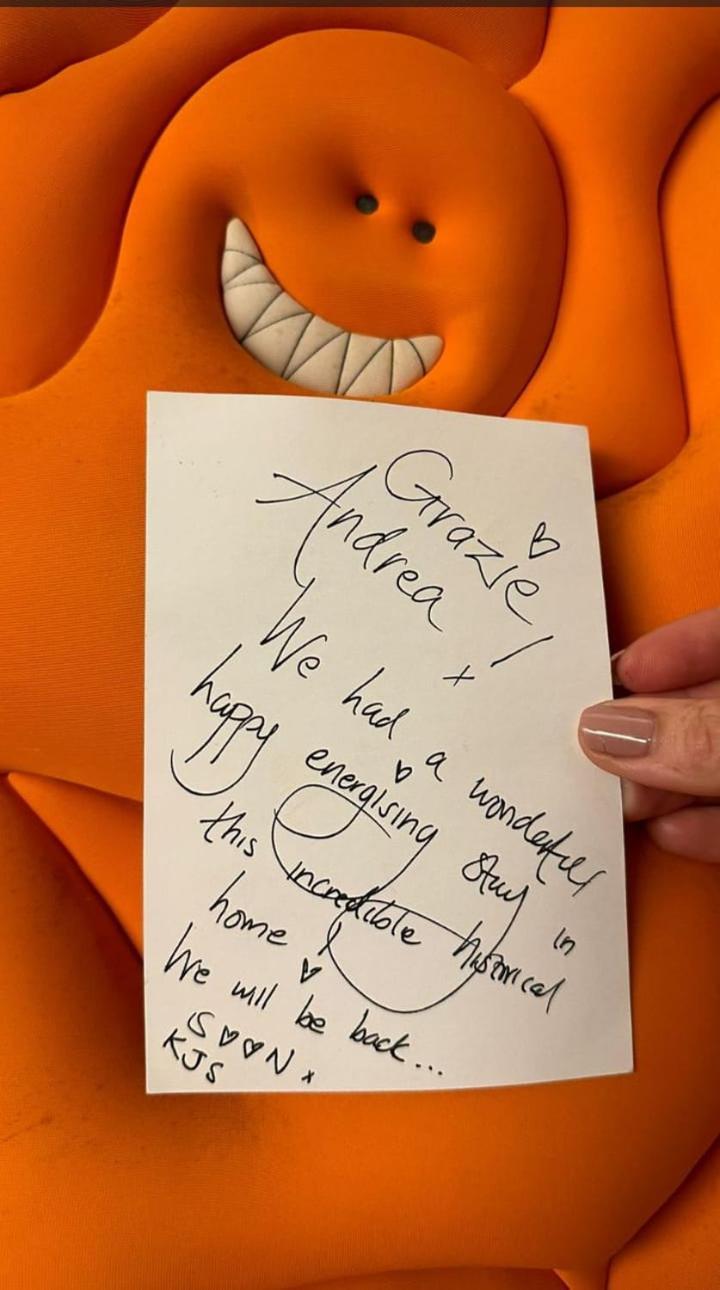 Grazie ♡
Andrea /
We had a wonderful x
happy energising stay in
this incredible historical
home ♡
We will be back...
S♡♡N x
KJS